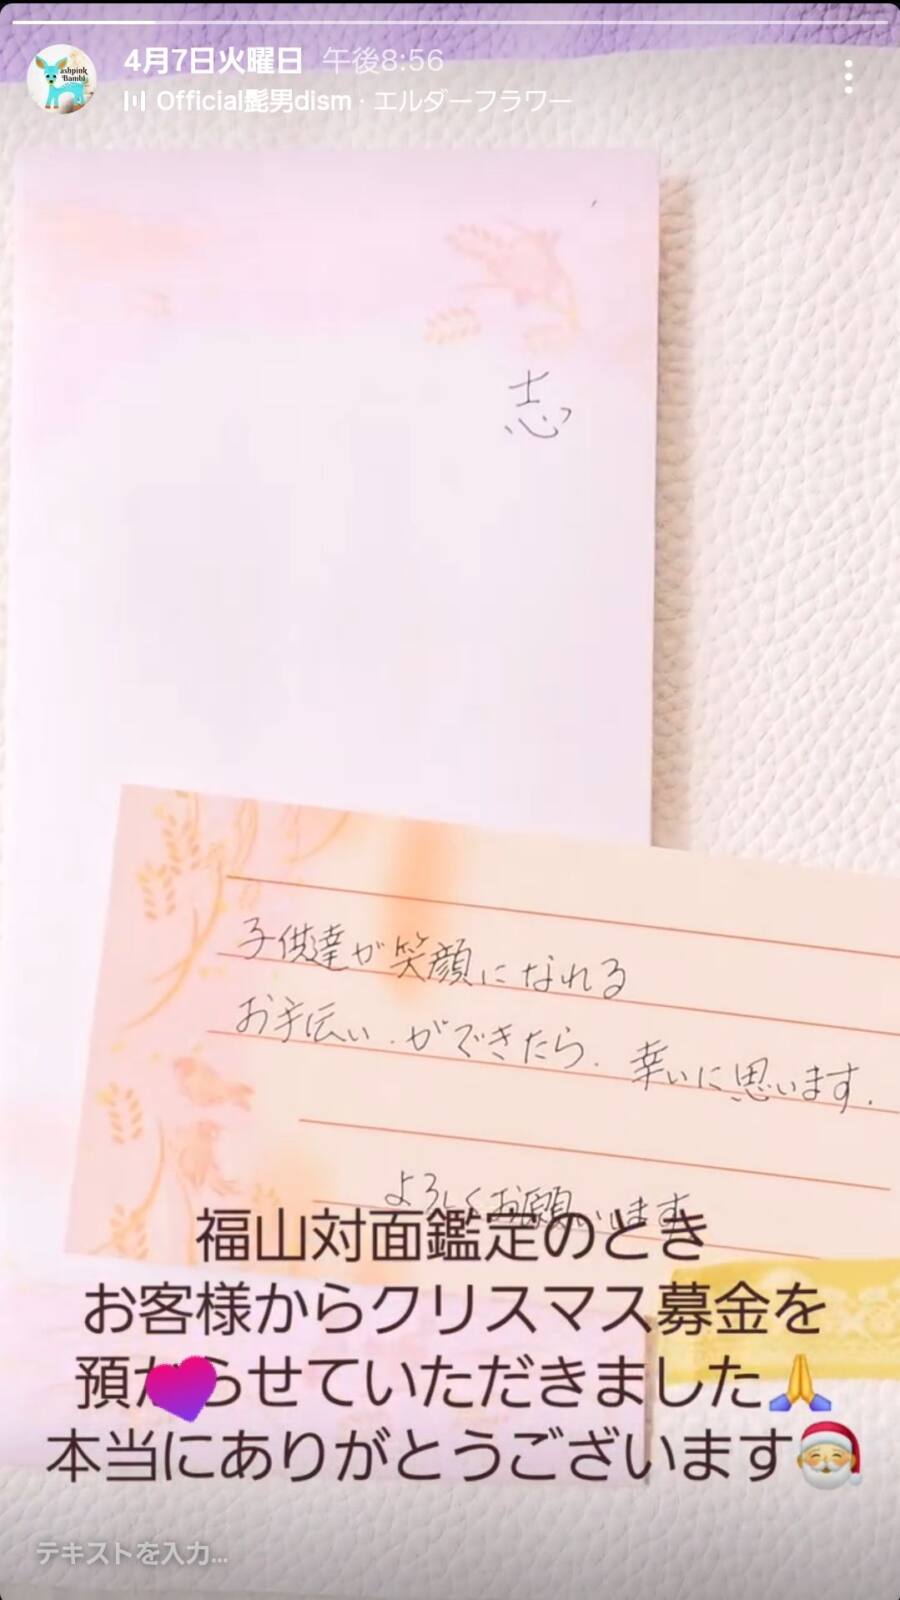 ashpink
Bambi
4月7日火曜日 午後8:56
Official髭男dism · エルダーフラワー
志
子供達が笑顔になれる
お手伝いができたら、幸いに思います.
よろしくお願いします
福山対面鑑定のとき
お客様からクリスマス募金を
預からせていただきました🙏
本当にありがとうございます🎅
テキストを入力...